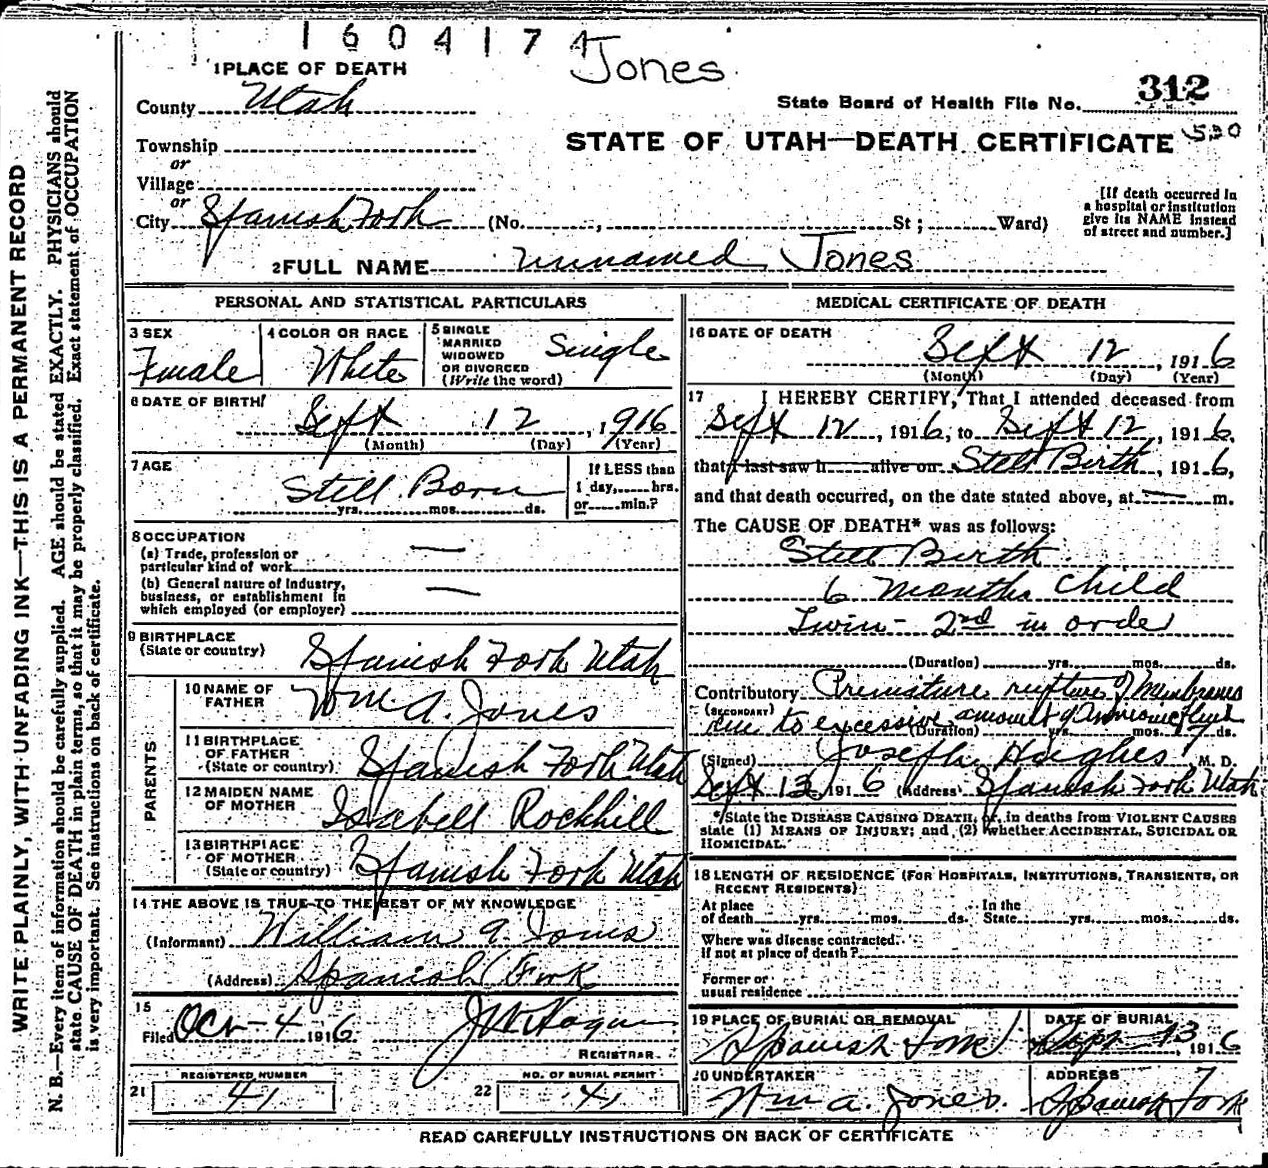 1604174
Jones
1 PLACE OF DEATH
County Utah
State Board of Health File No. 312
Township
or
STATE OF UTAH—DEATH CERTIFICATE 530
Village
or
City Spanish Fork (No. , St ; Ward)
[If death occurred in
a hospital or institution
give its NAME instead
of street and number.]
2 FULL NAME unnamed Jones
PERSONAL AND STATISTICAL PARTICULARS
3 SEX
Female
4 COLOR OR RACE
White
5 SINGLE
MARRIED
WIDOWED
OR DIVORCED
(Write the word)
Single
6 DATE OF BIRTH
Sept 12 , 1916
(Month) (Day) (Year)
7 AGE
Still Born
yrs. mos. ds.
If LESS than
1 day, hrs.
or min.?
8 OCCUPATION
(a) Trade, profession or
particular kind of work —
(b) General nature of Industry,
business, or establishment in
which employed (or employer) —
9 BIRTHPLACE
(State or country) Spanish Fork Utah
PARENTS
10 NAME OF
FATHER Wm A. Jones
11 BIRTHPLACE
OF FATHER
(State or country) Spanish Fork Utah
12 MAIDEN NAME
OF MOTHER Isabell Rockhill
13 BIRTHPLACE
OF MOTHER
(State or country) Spanish Fork Utah
14 THE ABOVE IS TRUE TO THE BEST OF MY KNOWLEDGE
(Informant) William A. Jones
(Address) Spanish Fork
15
Filed Oct - 4 1916
REGISTRAR
21 REGISTERED NUMBER
41
22 NO. OF BURIAL PERMIT
41
MEDICAL CERTIFICATE OF DEATH
16 DATE OF DEATH
Sept 12 , 1916
(Month) (Day) (Year)
17 I HEREBY CERTIFY, That I attended deceased from
Sept 12 , 1916, to Sept 12 , 1916,
that I last saw h alive on Still Birth , 1916,
and that death occurred, on the date stated above, at — m.
The CAUSE OF DEATH* was as follows:
Still Birth
6 months child
Twin - 2nd in order
(Duration) yrs. mos. ds.
Contributory Premature rupture of Membranes
(SECONDARY) due to excessive amount of
(Duration) yrs. mos. 7 ds.
(Signed) Joseph Hughes M. D.
Sept 13 1916 (Address) Spanish Fork Utah
*State the DISEASE CAUSING DEATH, or, in deaths from VIOLENT CAUSES
state (1) MEANS OF INJURY; and (2) whether ACCIDENTAL, SUICIDAL OR
HOMICIDAL.
18 LENGTH OF RESIDENCE (FOR HOSPITALS, INSTITUTIONS, TRANSIENTS, OR
RECENT RESIDENTS)
At place
of death yrs. mos. ds.
In the
State yrs. mos. ds.
Where was disease contracted.
if not at place of death?
Former or
usual residence
19 PLACE OF BURIAL OR REMOVAL
Spanish Fork
DATE OF BURIAL
Sept 13, 1916
20 UNDERTAKER
Wm A. Jones.
ADDRESS
Spanish Fork
READ CAREFULLY INSTRUCTIONS ON BACK OF CERTIFICATE
WRITE PLAINLY, WITH UNFADING INK—THIS IS A PERMANENT RECORD
N. B.—Every item of information should be carefully supplied. AGE should be stated EXACTLY. PHYSICIANS should
state CAUSE OF DEATH in plain terms, so that it may be properly classified. Exact statement of OCCUPATION
is very important. See instructions on back of certificate.